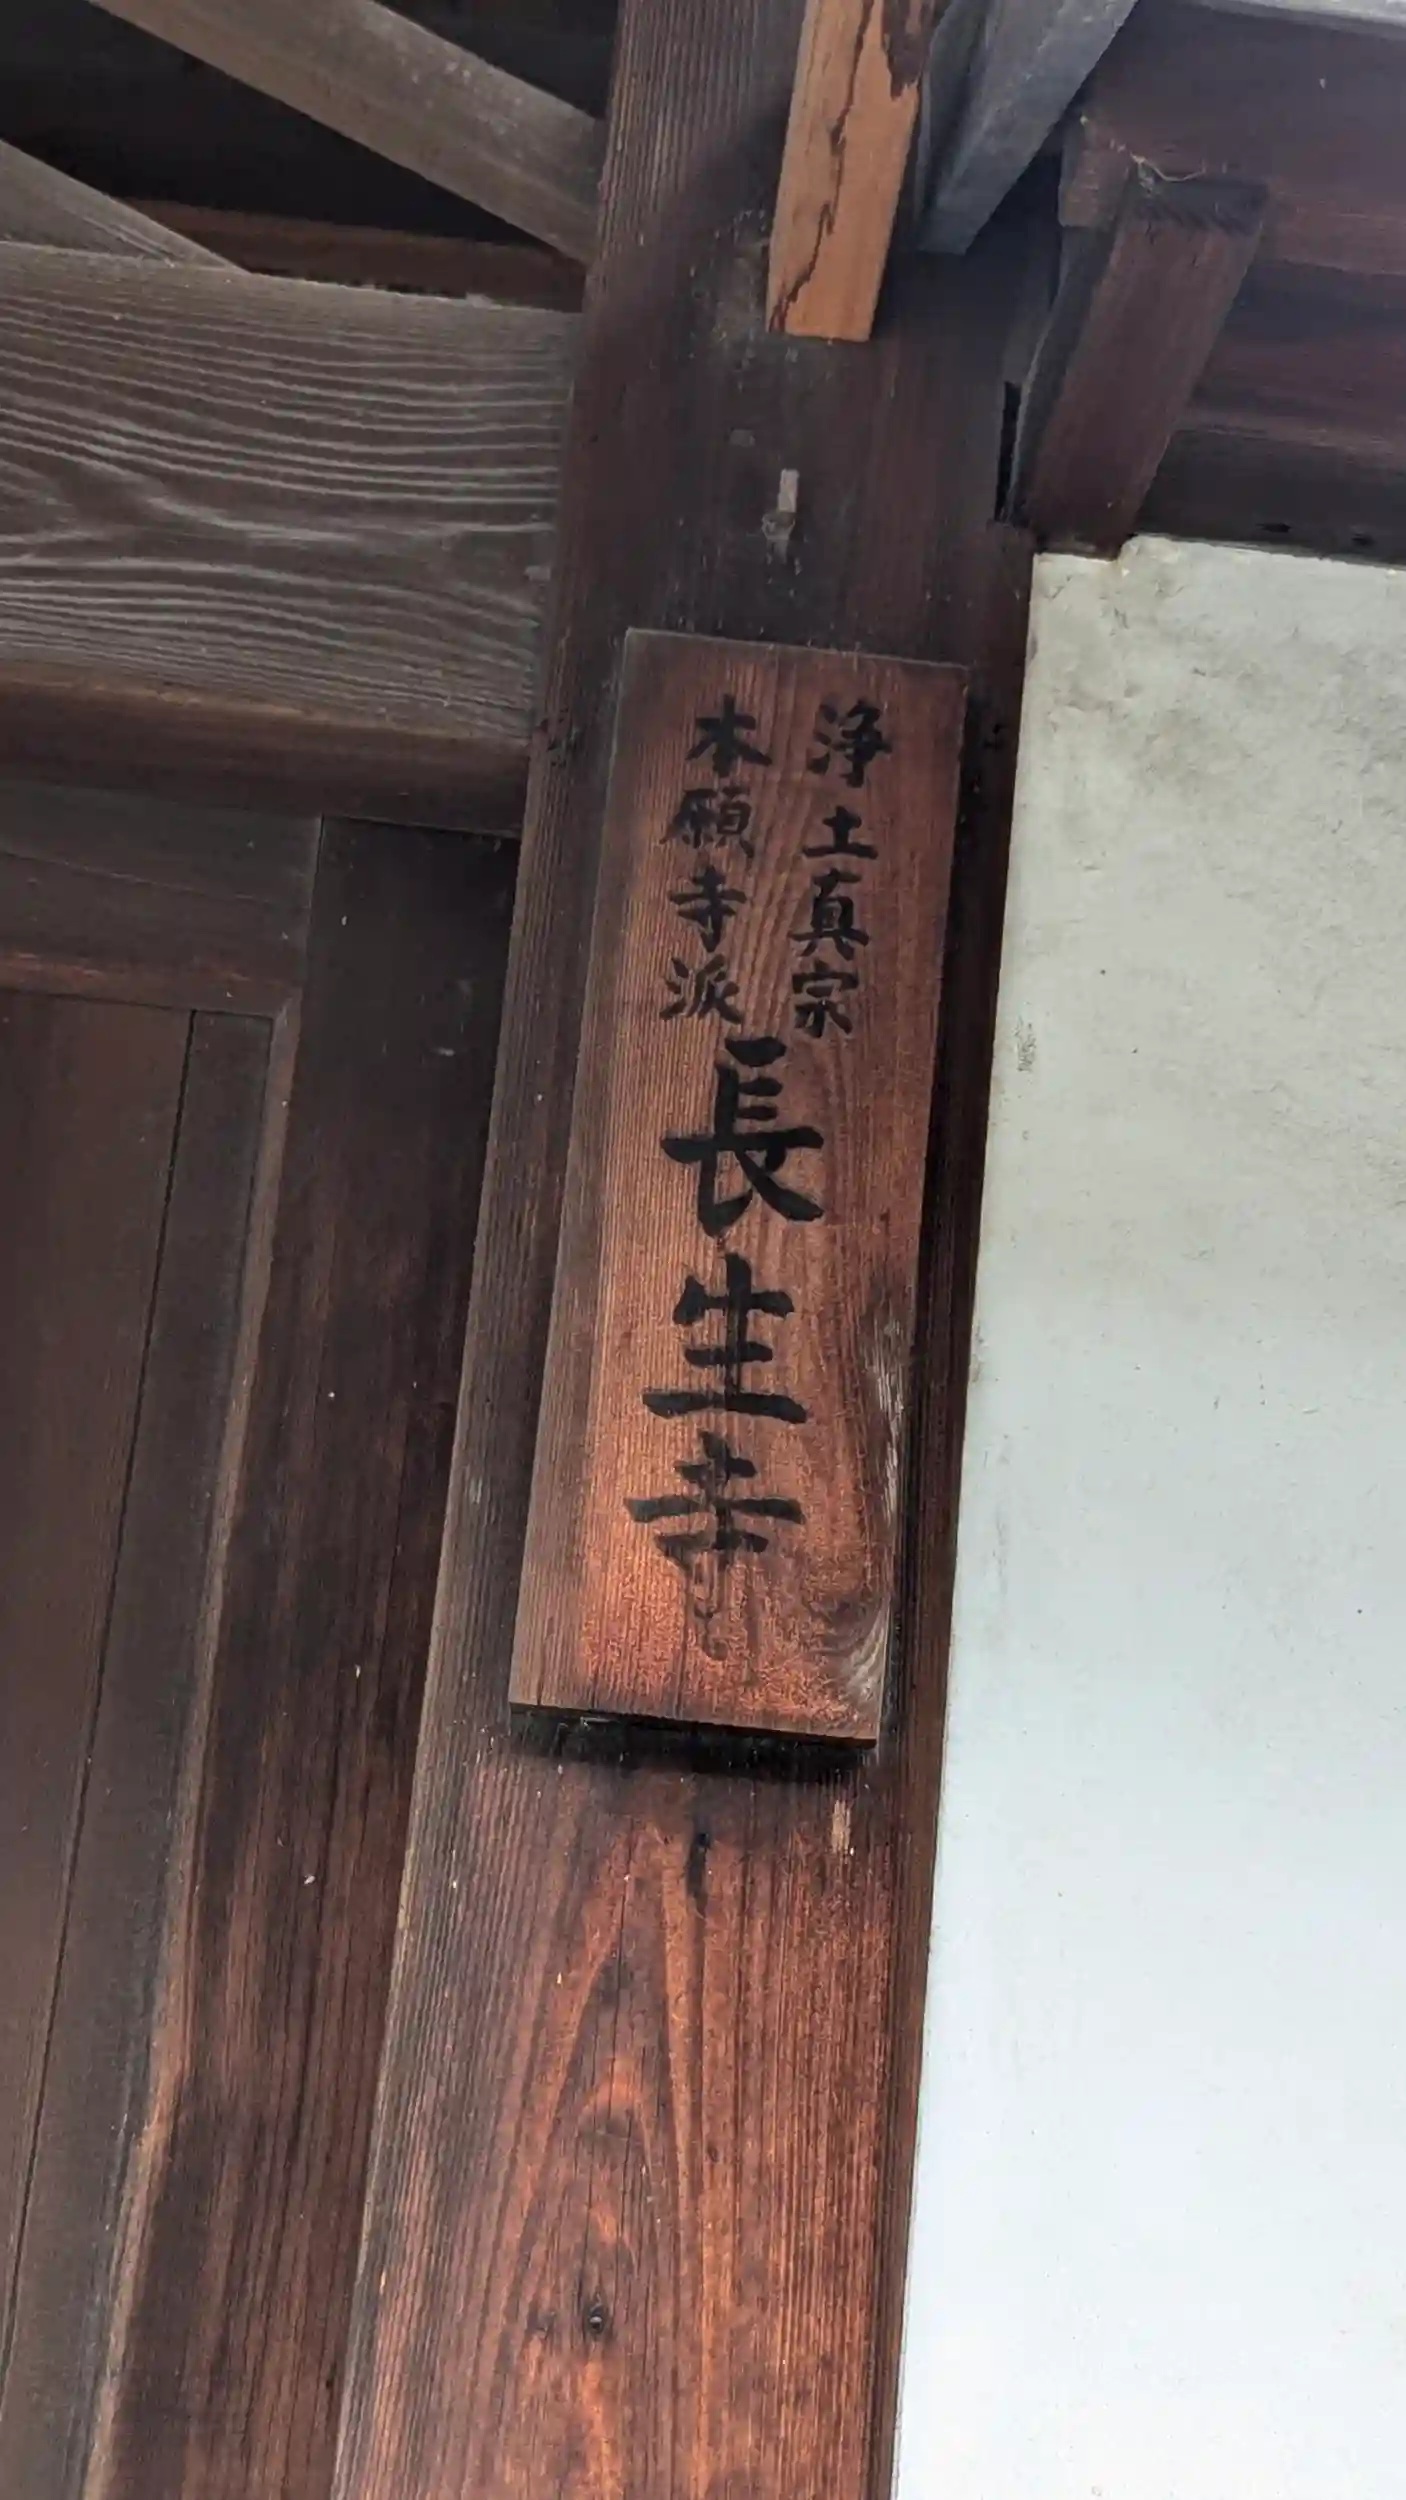 浄土真宗
本願寺派
長生寺